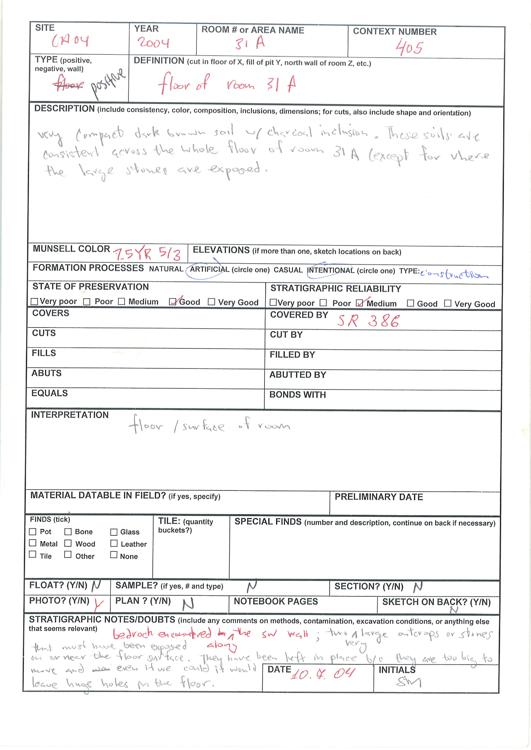 SITE YEAR ROOM # or AREA NAME CONTEXT NUMBER
CH04 2004 31 A 405
TYPE (positive, negative, wall) DEFINITION (cut in floor of X, fill of pit Y, north wall of room Z, etc.)
floor positive floor of room 31 A
DESCRIPTION (include consistency, color, composition, inclusions, dimensions; for cuts, also include shape and orientation)
very compact dark brown soil w/ charcoal inclusion. These soils are
consistent across the whole floor of room 31 A (except for where
the large stones are exposed.
MUNSELL COLOR 7.5YR 5/3 ELEVATIONS (if more than one, sketch locations on back)
FORMATION PROCESSES NATURAL ARTIFICIAL (circle one) CASUAL INTENTIONAL (circle one) TYPE: construction
STATE OF PRESERVATION STRATIGRAPHIC RELIABILITY
Very poor Poor Medium Good Very Good Very poor Poor Medium Good Very Good
COVERS COVERED BY SR 386
CUTS CUT BY
FILLS FILLED BY
ABUTS ABUTTED BY
EQUALS BONDS WITH
INTERPRETATION
floor / surface of room
MATERIAL DATABLE IN FIELD? (if yes, specify) PRELIMINARY DATE
FINDS (tick) TILE: (quantity buckets?) SPECIAL FINDS (number and description, continue on back if necessary)
Pot Bone Glass
Metal Wood Leather
Tile Other None
FLOAT? (Y/N) N SAMPLE? (if yes, # and type) N SECTION? (Y/N) N
PHOTO? (Y/N) Y PLAN ? (Y/N) N NOTEBOOK PAGES SKETCH ON BACK? (Y/N) N
STRATIGRAPHIC NOTES/DOUBTS (include any comments on methods, contamination, excavation conditions, or anything else
that seems relevant) bedrock encountered along the SW wall; two very large outcrops or stones
that must have been exposed
on or near the floor surface. They have been left in place b/c they are too big to
move and even if we could it would
leave huge holes in the floor.
DATE 10.7.04 INITIALS SM